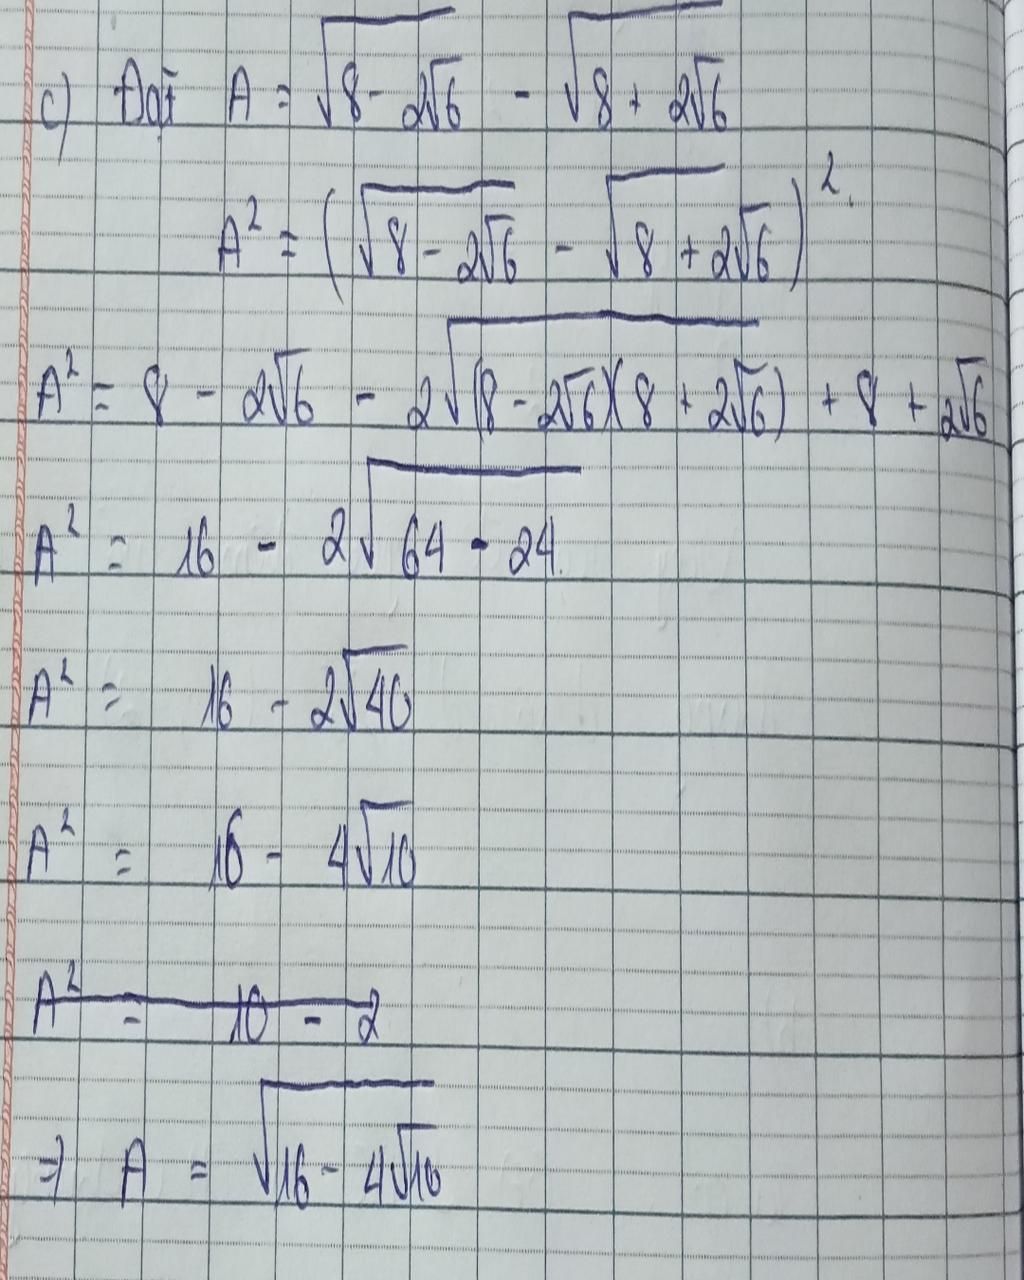 c) Đặt A = √(8 - 2√6) - √(8 + 2√6)
A² = (√(8 - 2√6) - √(8 + 2√6))²
A² = 8 - 2√6 - 2√((8 - 2√6)(8 + 2√6)) + 8 + 2√6
A² = 16 - 2√(64 - 24)
A² = 16 - 2√40
A² = 16 - 4√10
A² = 10 - 2
⇒ A = √(16 - 4√10)